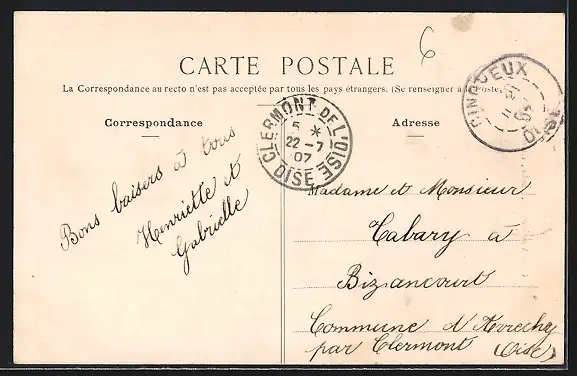 6
CARTE POSTALE
La Correspondance au recto n'est pas acceptée par tous les pays étrangers. (Se renseigner à la Poste)
Correspondance
Adresse
CLERMONT DE L'OISE
5 *
22 -7
07
OISE
CINQUEUX
OISE
Bons baisers à tous
Henriette et
Gabrielle
Madame et Monsieur
Tabary à
Bizancourt
Commune d'Avrechy
par Clermont (Oise)